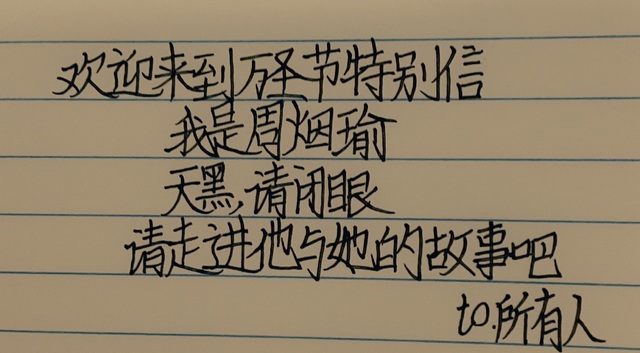 欢迎来到万圣节特别信
我是周烟瑜
天黑,请闭眼
请走进他与她的故事吧
to.所有人